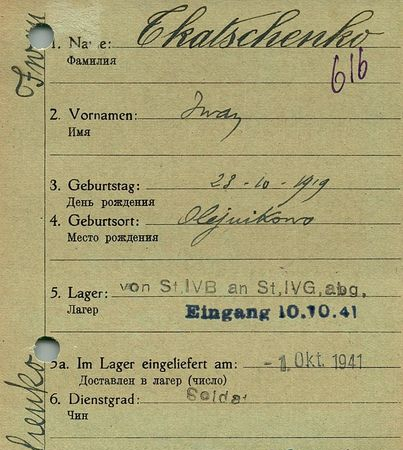 1. Name: Tkatschenko
Фамилия
616
2. Vornamen: Iwan
Имя
3. Geburtstag: 28-10-1919
День рождения
4. Geburtsort: Olejnikowo
Место рождения
5. Lager: von St,IVB an St,IVG,abg,
Лагер
Eingang 10.10.41
5a. Im Lager eingeliefert am: -1. Okt 1941
Доставлен в лагер (число)
6. Dienstgrad: Soldat
Чин
Iwan
henko